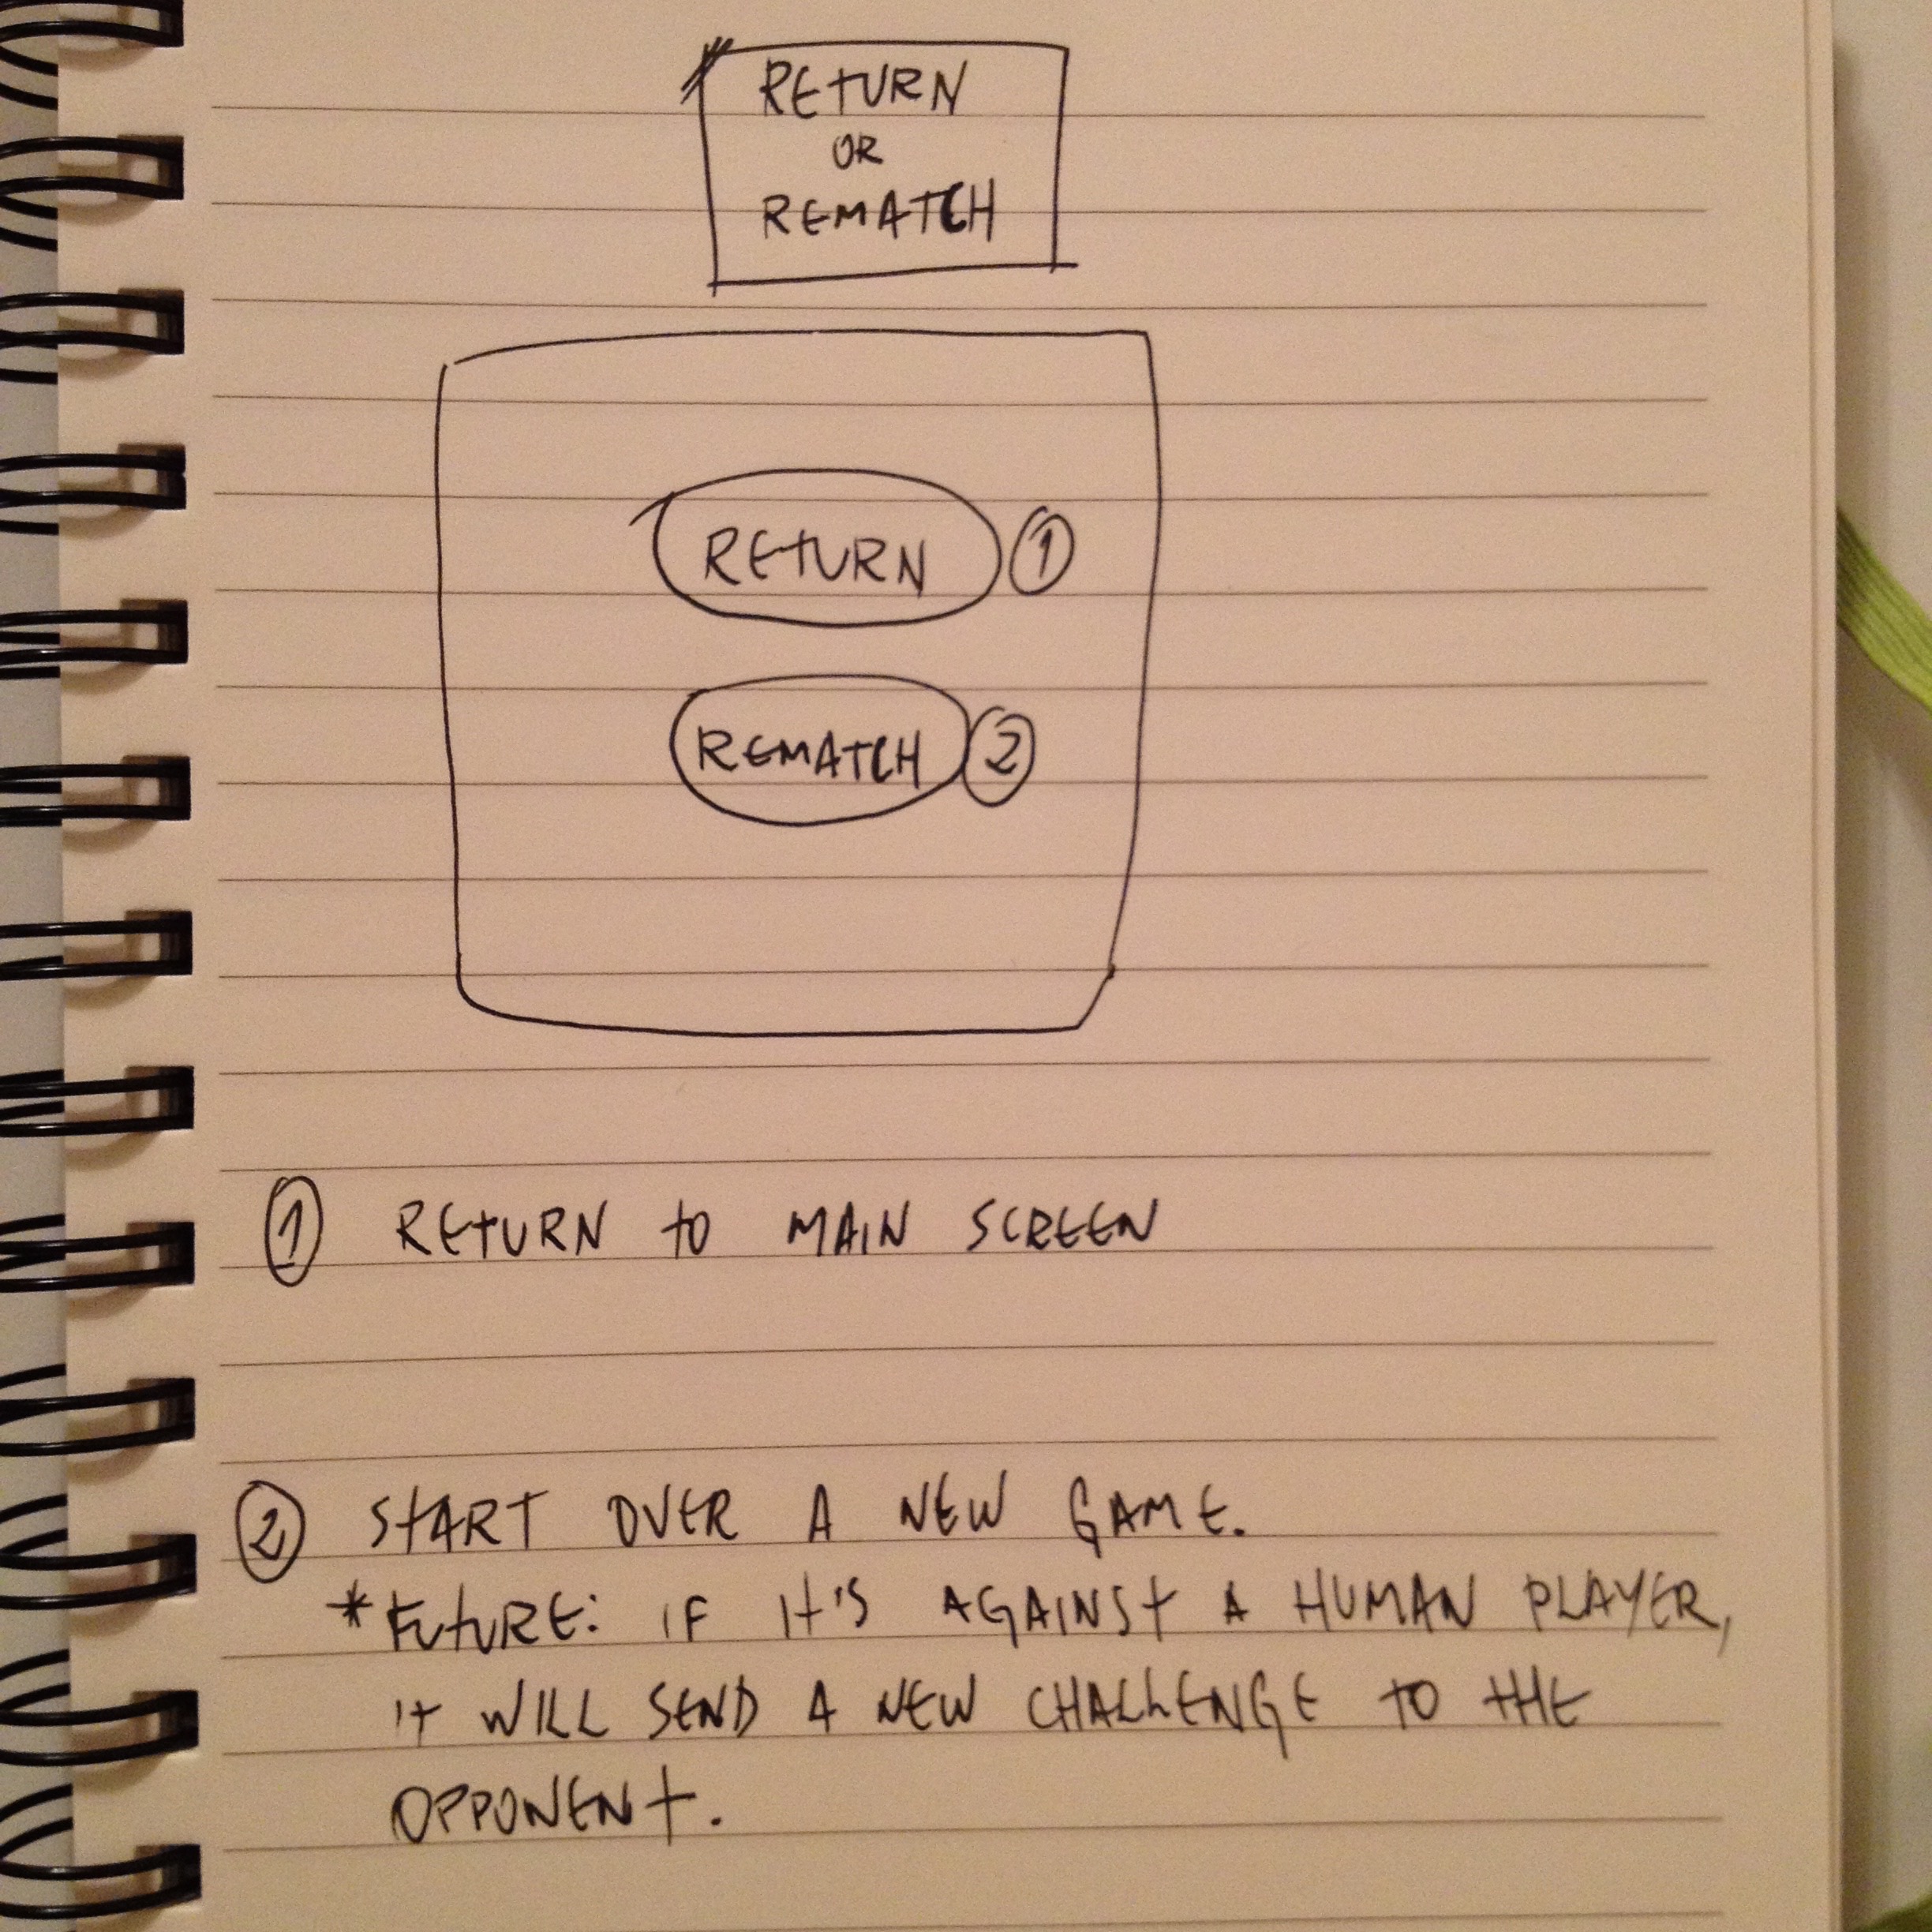 RETURN
OR
REMATCH
RETURN 1
REMATCH 2
1 RETURN TO MAIN SCREEN
2 START OVER A NEW GAME.
*FUTURE: IF IT'S AGAINST A HUMAN PLAYER,
IT WILL SEND A NEW CHALLENGE TO THE
OPPONENT.